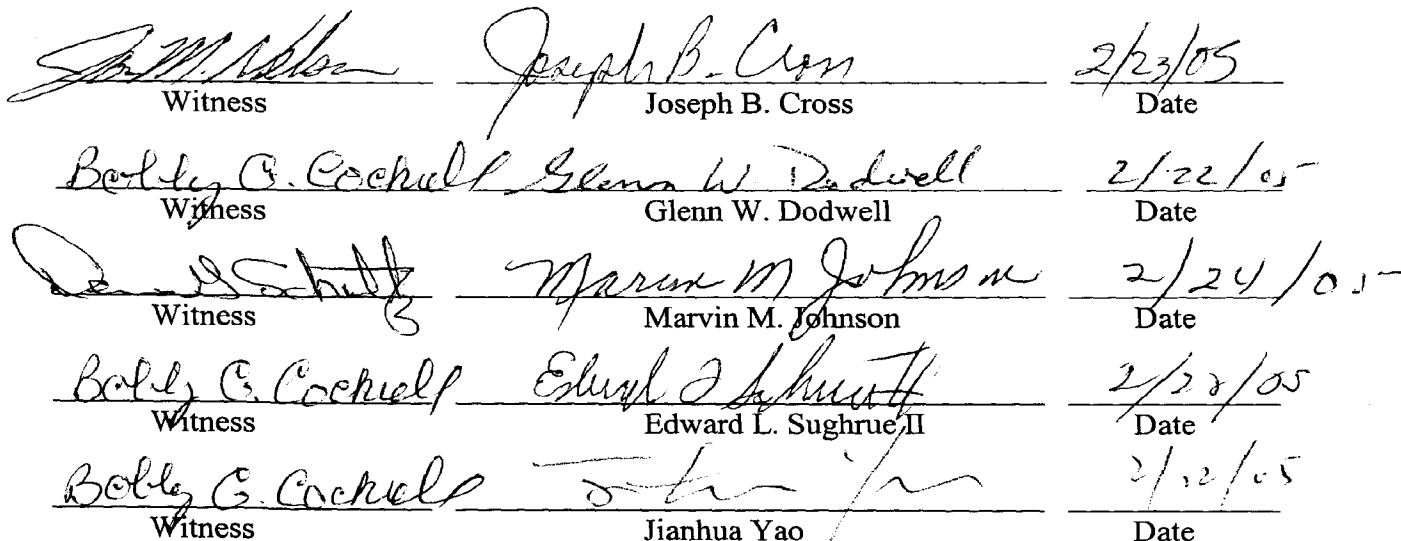 Joseph B. Cross 2/23/05
Witness Joseph B. Cross Date
Bobby G. Cockrell Glenn W Dodwell 2/22/05
Witness Glenn W. Dodwell Date
Marvin M Johnson 2/24/05
Witness Marvin M. Johnson Date
Bobby G. Cockrell Edward L Sughrue II
Witness Edward L. Sughrue II Date
Bobby G. Cockrell
Witness Jianhua Yao Date